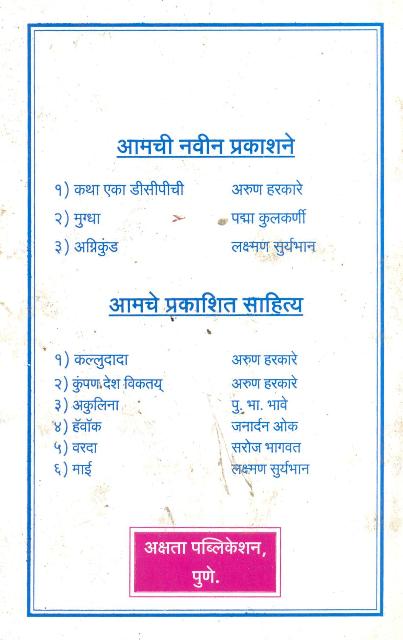 आमची नवीन प्रकाशने
१) कथा एका डीसीपीची अरुण हरकारे
२) मुग्धा पद्मा कुलकर्णी
३) अग्निकुंड लक्ष्मण सुर्यभान
आमचे प्रकाशित साहित्य
१) कल्लुदादा अरुण हरकारे
२) कुंपण देश विकतय् अरुण हरकारे
३) अकुलिना पु. भा. भावे
४) हॅवॉक जनार्दन ओक
५) वरदा सरोज भागवत
६) माई लक्ष्मण सुर्यभान
अक्षता पब्लिकेशन,
पुणे.